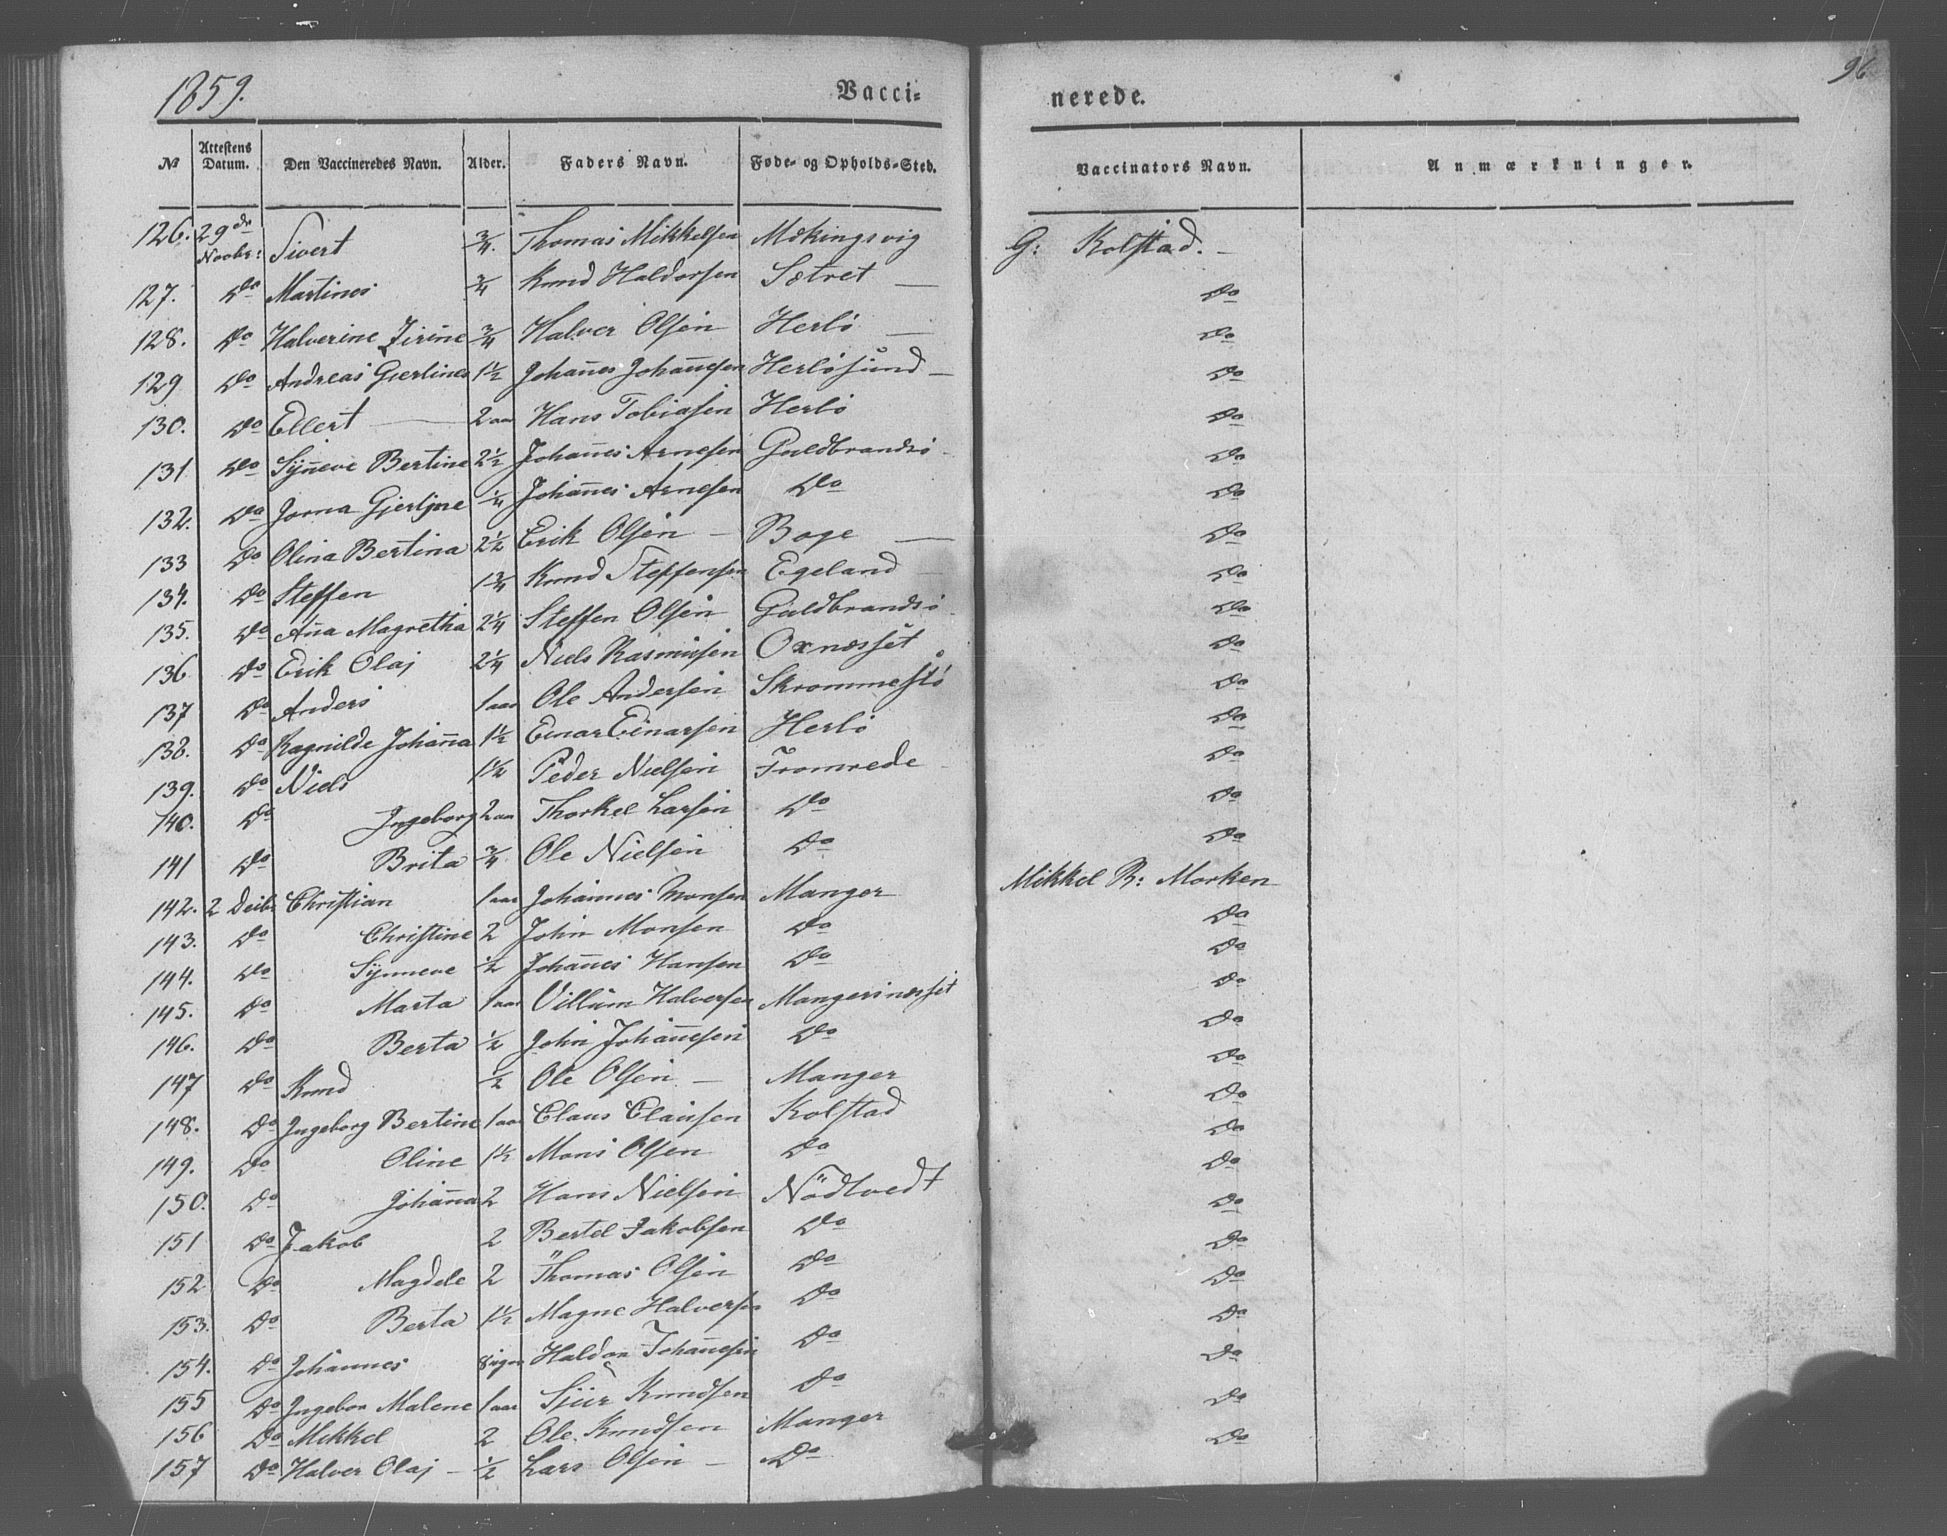 1859. Vacci- nerede. 96
No Attestens Datum. Den Vaccineredes Navn. Alder. Faders Navn. Føde- og Opholds-Sted. Vaccinators Navn. Anmærkninger.
126. 29de Novbr: Sivert 3/4. Thomas Mikkelsen Mækingsvig G: Kolstad. -
127. Do Martines 3/4 Knud Haldorsen Sætret — Do
128. Do Halverine Zirine 3/4 Halver Olsen Herlö — Do
129 Do Andreas Gjertines 1 1/2 Johannes Johannesen Herlösund — Do
130. Do Ellert — 2 aar Hans Tobiasen Herlö Do
131 Do Synneve Bertine 2 1/2 Johannes Arnesen Guldbrandsö - Do
132. Do Jorna Gjertine 1/4 Johannes Arnesen Do Do
133 Do Olina Bertina 2 1/2 Erik Olsen — Boge — Do
134. Do Steffen 1 3/4 Knud Steffensen Egeland Do
135. Do Anna Magretha 2 1/4 Steffen Olsen Guldbrandsö Do
136 Do Erik Olaj 2 1/4 Niels Rasmusen Oxnesset Do
137 Do Anders 1 aar Ole Andersen Skrommestö Do
138. Do Ragnilde Johanna 1 1/2 Einar Einarsen Herlö Do
139. Do Niels 1 1/2 Peder Nielsen Fromrede Do
140. Do Ingeborg 2 aar Thorkel Larsen Do Do
141 Do Brita 3/4 Ole Nielsen Do Do
142. 2 Decbr Christian 1 aar Johannes Monsen Manger Mikkel R: Morken
143. Do Christine 2 John Monsen Do Do
144. Do Synneve 1/2 Johannes Hansen Do Do
145. Do Marta 1 aar Villum Halversen Mangersnesset Do
146. Do Berta 1/2 John Johannesen Do Do
147 Do Knud 1/2 Ole Olsen — Manger Do
148. Do Ingeborg Bertine 1 aar Claus Clausen Kolstad Do
149. Do Oline 1 1/2 Mons Olsen Do Do
150. Do Johanna 2 Hans Nielsen Nödtvedt Do
151 Do Jakob 2 Bertel Jakobsen Do Do
152 Do Magdele 2 Thomas Olsen Do Do
153. Do Berta 1 1/2 Magne Halversen Do Do
154. Do Johannes Haldor Johannesen Do Do
155 Do Ingebor Malene 1 aar Sjur Knudsen Do Do
156 Do Mikkel 2 Ole Knudsen Manger Do
157 Do Halver Olaj - 1/2 Lars Olsen — Do Do